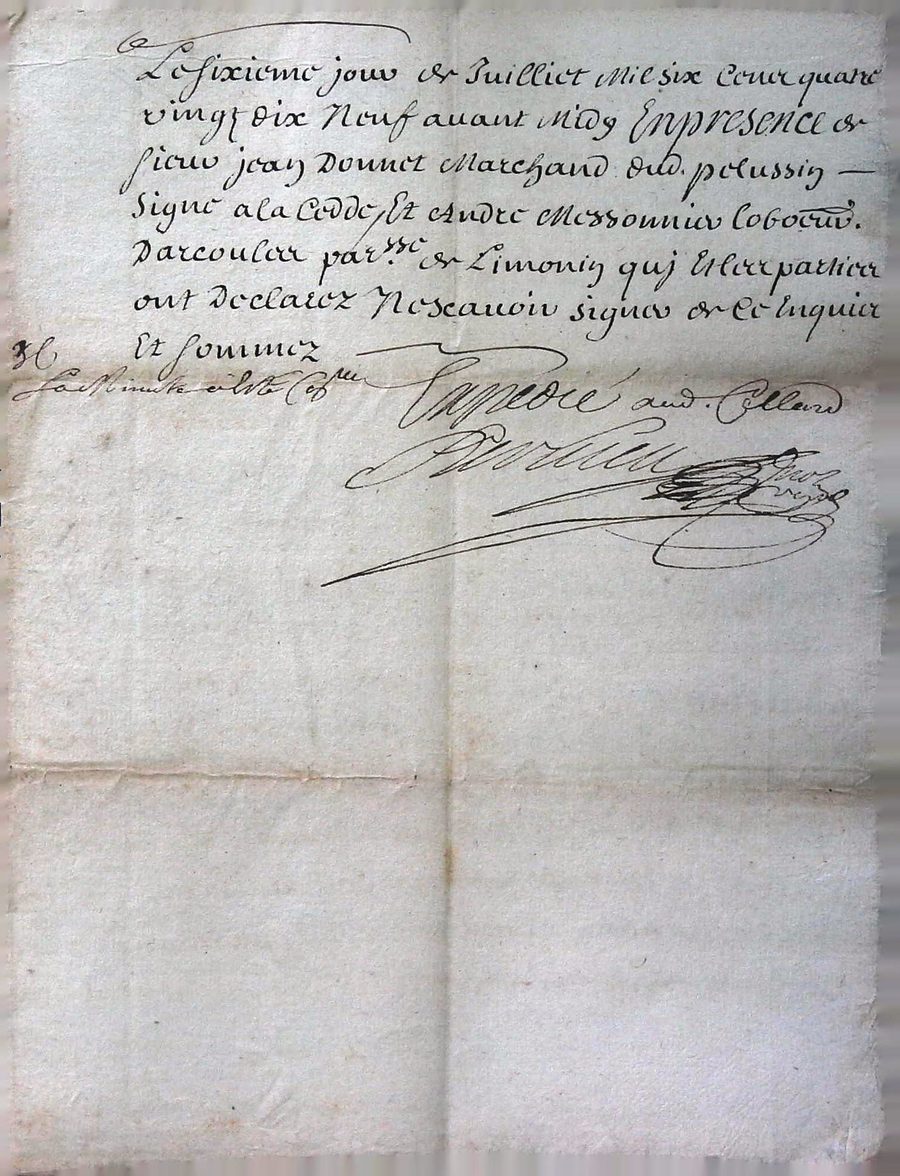 Le sixieme jour de Juilliet Mil six Cens quatre
vingt dix Neuf avant Midy En presence de
sieur jean Donnet Marchand dud. pelussin —
signé a la Cedde, Et André Messonnier laboeur.
Darcoules par.sse de Limoniy quj Et les parties
ont Declarez Ne scavoir signer de Ce Enquis
Et sommez
La Minutte
Expedié aud. Cellard